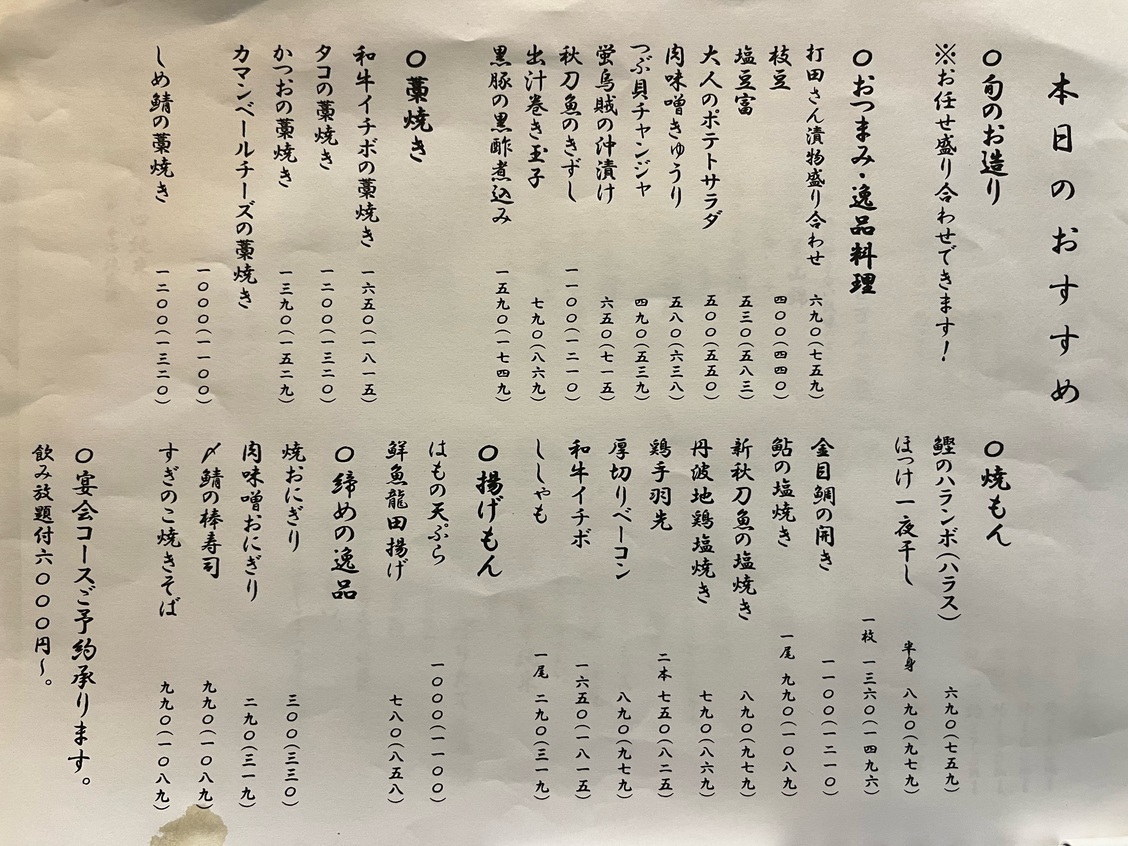 本日のおすすめ
〇旬のお造り
※お任せ盛り合わせできます！
〇おつまみ・逸品料理
打田さん漬物盛り合わせ 六九〇(七五九)
枝豆 四〇〇(四四〇)
塩豆富 五三〇(五八三)
大人のポテトサラダ 五〇〇(五五〇)
肉味噌きゅうり 五八〇(六三八)
つぶ貝チャンジャ 四九〇(五三九)
蛍烏賊の沖漬け 六五〇(七一五)
秋刀魚のきずし 一一〇〇(一二一〇)
出汁巻き玉子 七九〇(八六九)
黒豚の黒酢煮込み 一五九〇(一七四九)
〇藁焼き
和牛イチボの藁焼き 一六五〇(一八一五)
タコの藁焼き 一二〇〇(一三二〇)
かつおの藁焼き 一三九〇(一五二九)
カマンベールチーズの藁焼き
一〇〇〇(一一〇〇)
しめ鯖の藁焼き 一二〇〇(一三二〇)
〇焼もん
鰹のハランボ(ハラス) 六九〇(七五九)
ほっけ一夜干し 半身 八九〇(九七九)
一枚 一三六〇(一四九六)
金目鯛の開き 一一〇〇(一二一〇)
鮎の塩焼き 一尾 九九〇(一〇八九)
新秋刀魚の塩焼き 八九〇(九七九)
丹波地鶏塩焼き 七九〇(八六九)
鶏手羽先 二本 七五〇(八二五)
厚切りベーコン 八九〇(九七九)
和牛イチボ 一六五〇(一八一五)
ししゃも 一尾 二九〇(三一九)
〇揚げもん
はもの天ぷら 一〇〇〇(一一〇〇)
鮮魚龍田揚げ 七八〇(八五八)
〇締めの逸品
焼おにぎり 三〇〇(三三〇)
肉味噌おにぎり 二九〇(三一九)
〆鯖の棒寿司 九九〇(一〇八九)
すぎのこ焼きそば 九九〇(一〇八九)
〇宴会コースご予約承ります。
飲み放題付六〇〇〇円～。